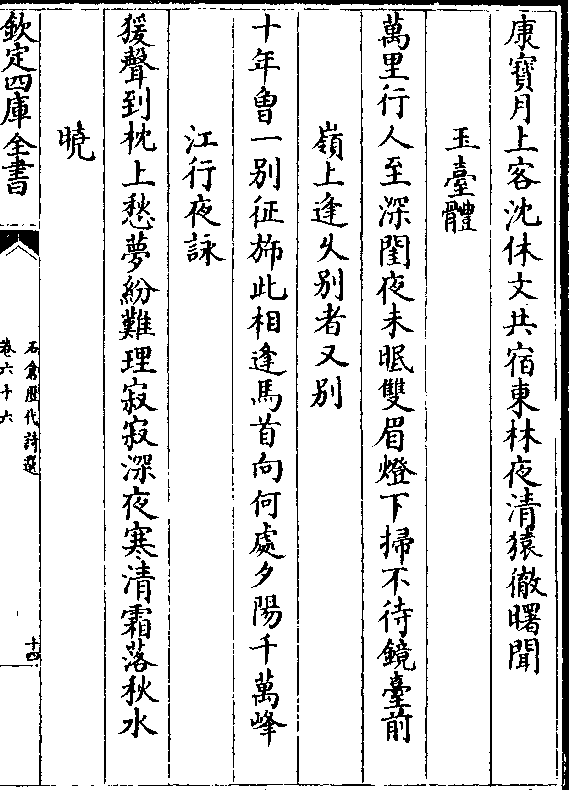 康寶月上客沈休文共宿東林夜清猿徹曙聞
玉臺體
萬里行人至深閨夜未眠雙眉燈下掃不待鏡臺前
嶺上逢久别者又别
十年曾一别征斾此相逢馬首向何處夕陽千萬峰
江行夜詠
猨聲到枕上愁夢紛難理寂寂深夜寒清霜落秋水
曉
欽定四庫全書
石倉歴代詩選
卷六十六
十四